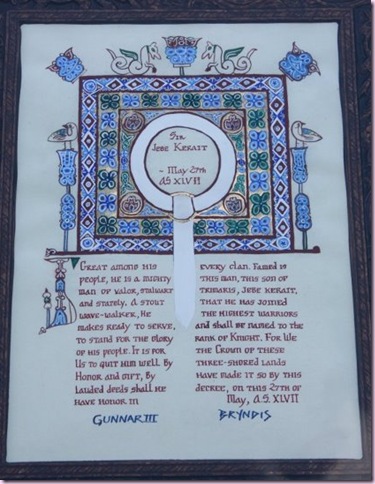 Sir
Jebe Kerait
~ May 27th
A.S. XLVII
Great among his
people, he is a mighty
man of valor, stalwart
and stately. A stout
wave-walker, he
makes ready to serve,
to stand for the glory
of his people. It is for
Us to quit him well. By
Honor and gift, By
Lauded deeds shall he
have honor in
every clan. Famed is
this man, this son of
Trimaris, Jebe Kerait,
that he has joined
the highest warriors
and shall be named to the
rank of Knight. For We
the Crown of these
three-shored lands
have made it so by this
decree, on this 27th of
May, A.S. XLVII
GUNNAR III
BRYNDIS